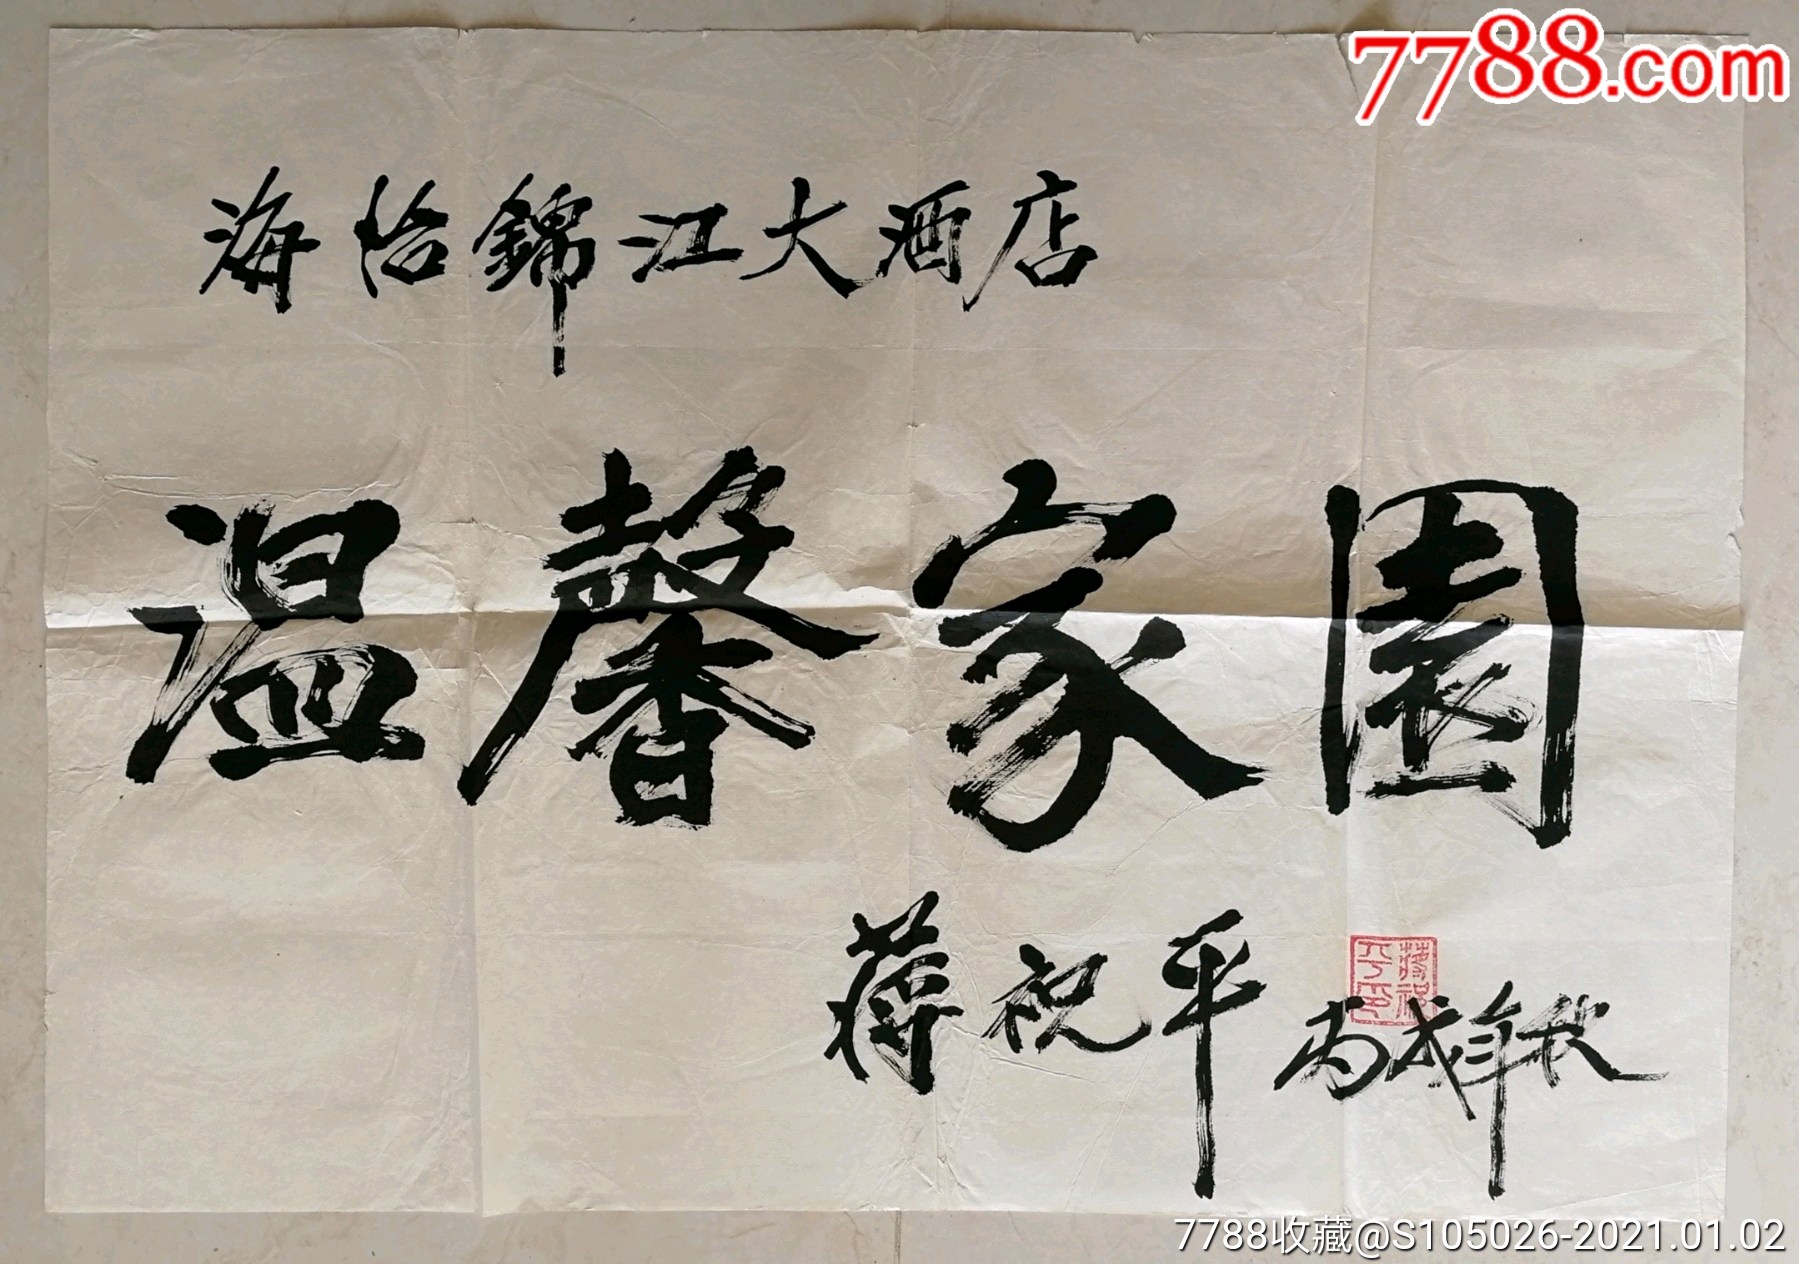 7788.com
海怡錦江大酒店
温馨家園
蒋祝平
蒋祝平印
丙戌年秋
7788收藏@S105026-2021.01.02